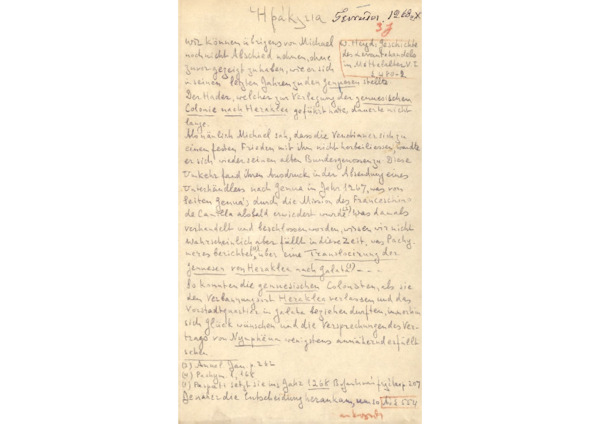 Ἡράκλεια Γενουᾶται 1268
W. Heyd, Geschichte
des Levantehandels
im Mittelalter V. I
S. 470-2
Wir können übrigens von Michael
noch nicht Abschied nehmen, ohne
zuvor gezeigt zu haben, wie er sich
in seinen letzten Jahren zu den Genuesen stellte
Der Hader, welcher zur Verlegung der genuesischen
Colonie nach Heraklea geführt hatte dauerte nicht
lange.
Michael sah, dass die Venetianer sich zu
einem festen Frieden mit ihm nicht herbeiliessen, wandte
er sich wieder seinen alten Bundesgenossen zu Diese
Umkehr fand ihren Ausdruck in der Absendung eines
Unterhändlers nach Genua im Jahr 1267, was von
Seiten Genua's durch die Mission des Franceschino
de Camilla alsbald erwiedert wurde Was damals
verhandelt und beschlossen worden, wissen wir nicht
wahrscheinlich aber fällt in diese Zeit, was Pachy-
meres berichtet, über eine Translocirung der
Genuesen von Heraklea nach Galata - - -
So konnten die genuesischen Colonisten, als sie
den Verbannungsort Heraklea verlassen und das
Vorstadtquartier in Galata beziehen durften,
sich Glück wünschen und die Versprechungen des Ver-
trags von Nymphäum wenigstens annähernd erfüllt
sehen
(3) Annal. Jan. p. 262
(4) Pachym. I, 168
(1) Paspati setzt sie ins Jahr 1268
die Entscheidung